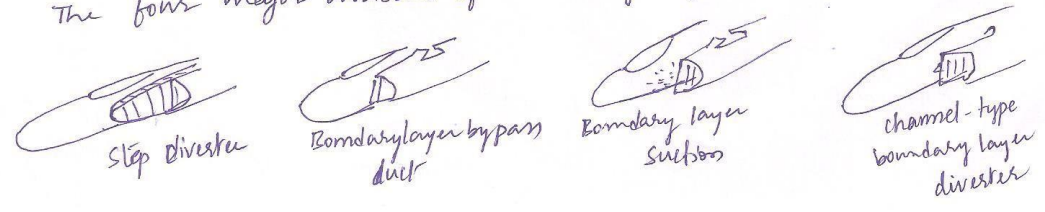 The four major
step diverter
Boundarylayer bypass
duct
Boundary layer
suction
channel-type
boundary layer
diverter